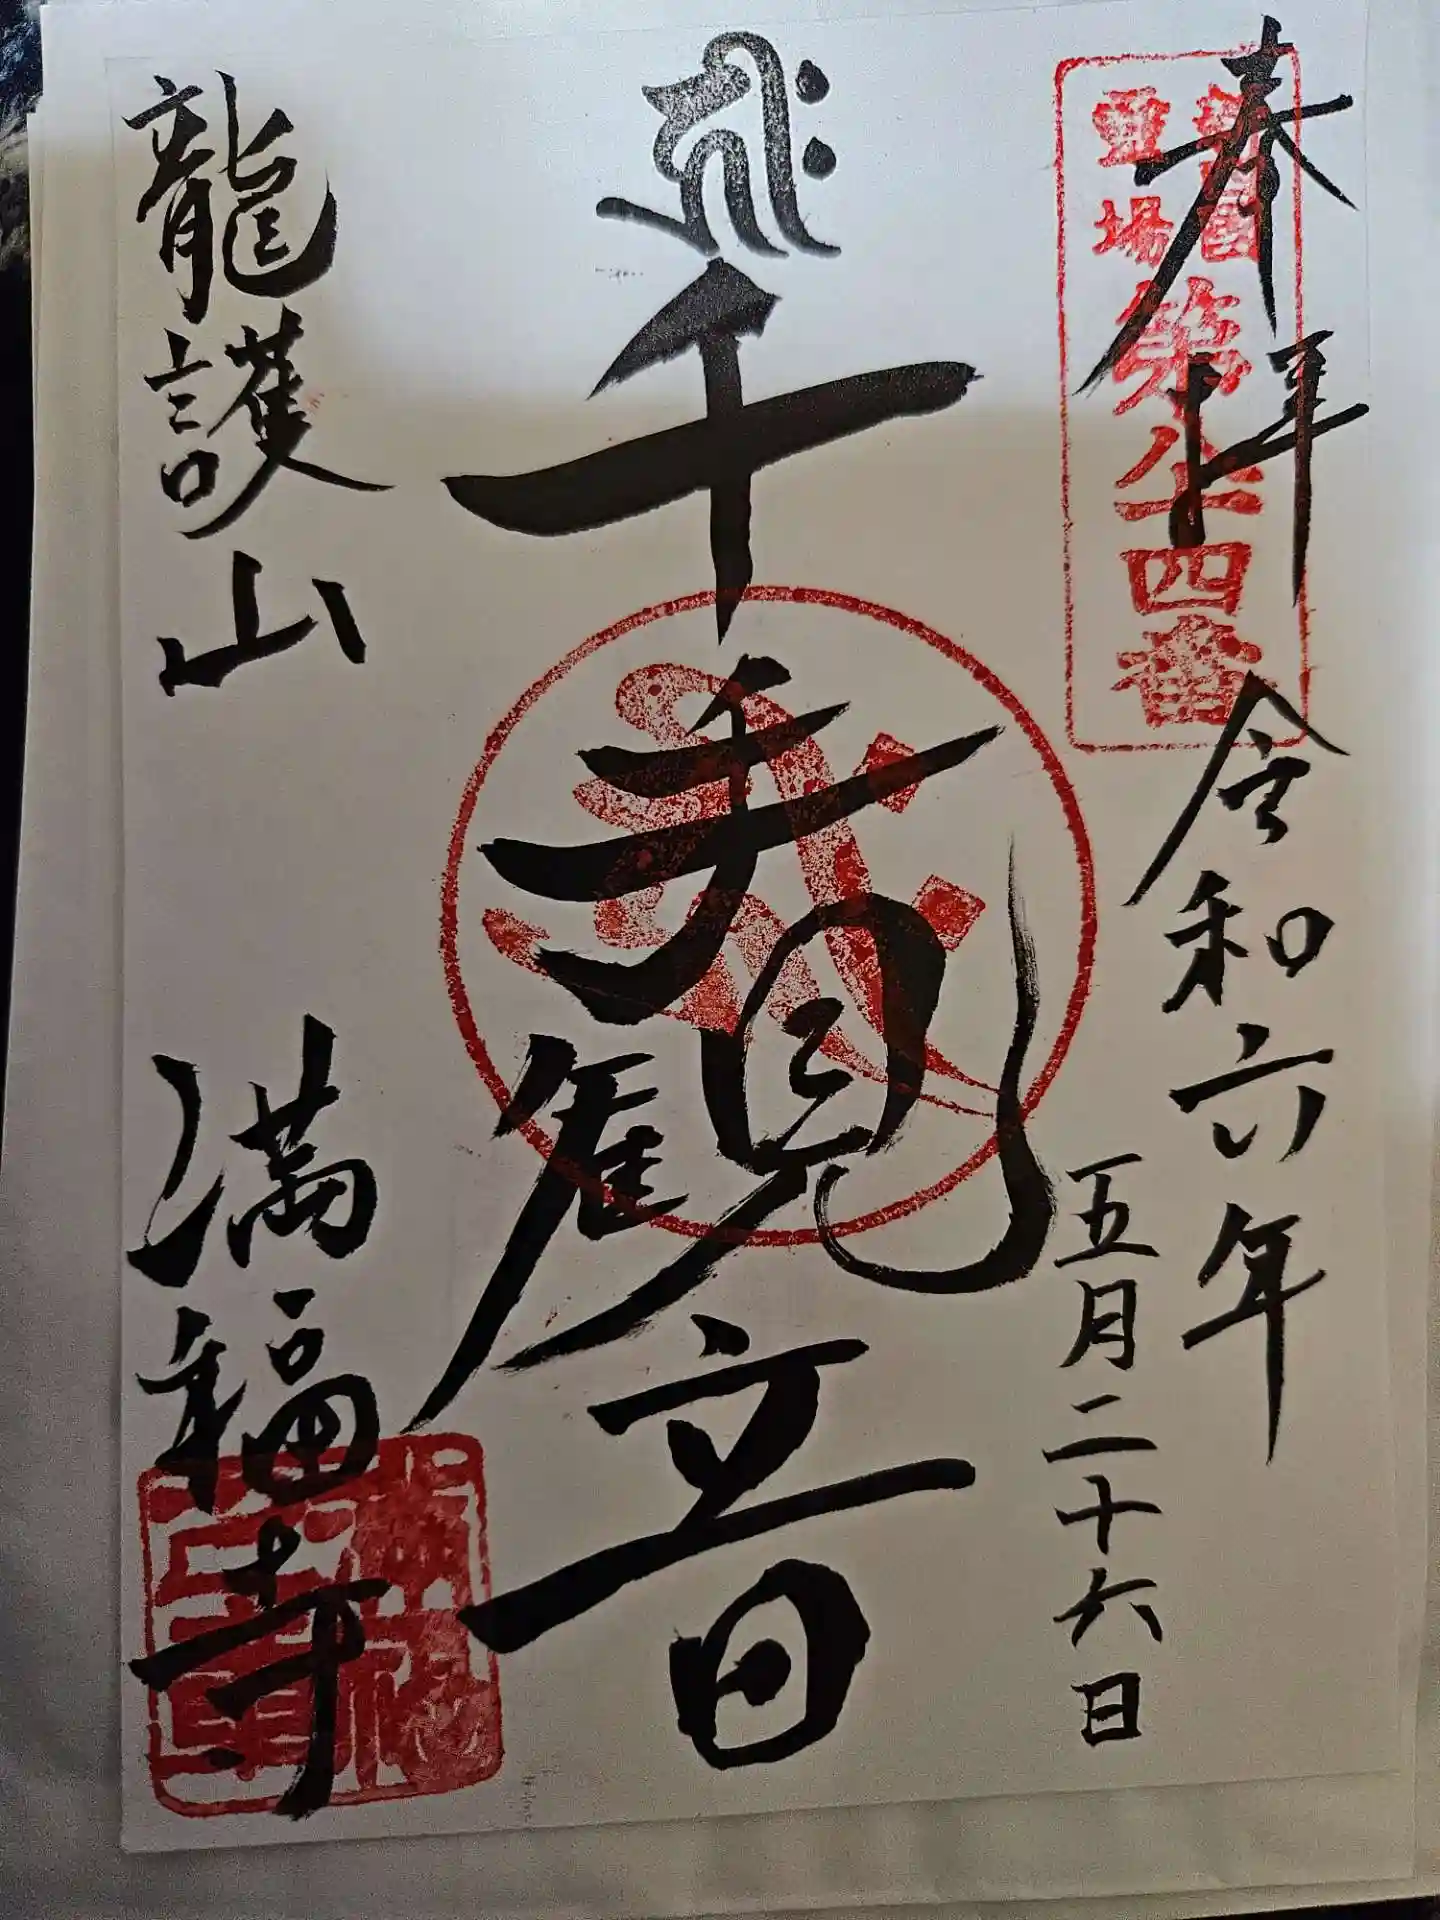 奉拝
令和六年
五月二十六日
霊場
第
四番
千手観音
龍護山
満福寺